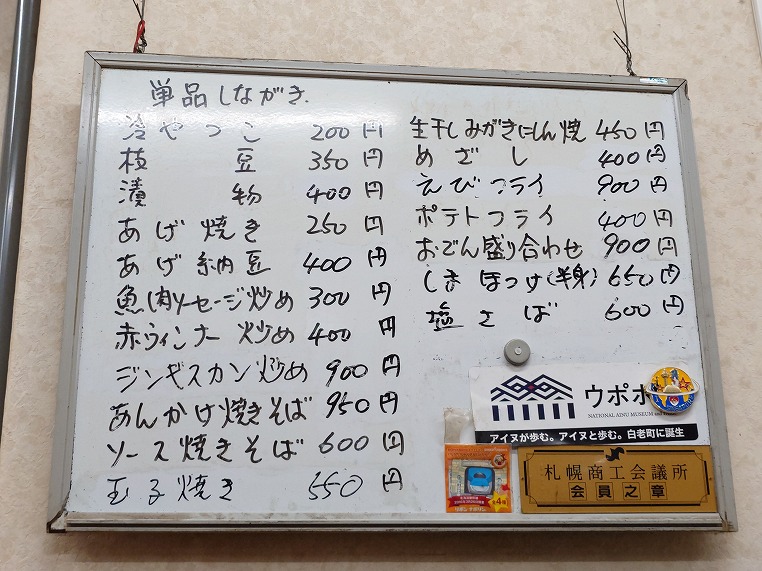 単品しながき
冷やつこ 200円
枝豆 350円
漬物 400円
あげ焼き 250円
あげ納豆 400円
魚肉ソーセージ炒め 300円
赤ウィンナー炒め 400円
ジンギスカン炒め 900円
あんかけ焼きそば 950円
ソース焼きそば 600円
玉子焼き 550円
生干しみがきにしん焼 450円
めざし 400円
えびフライ 900円
ポテトフライ 400円
おでん盛り合わせ 900円
しまほっけ(半身) 650円
塩さば 600円
ウポポ
NATIONAL AINU MUSEUM and
アイヌが歩む。アイヌと歩む。白老町に誕生
札幌商工会議所
会員之章
全4種